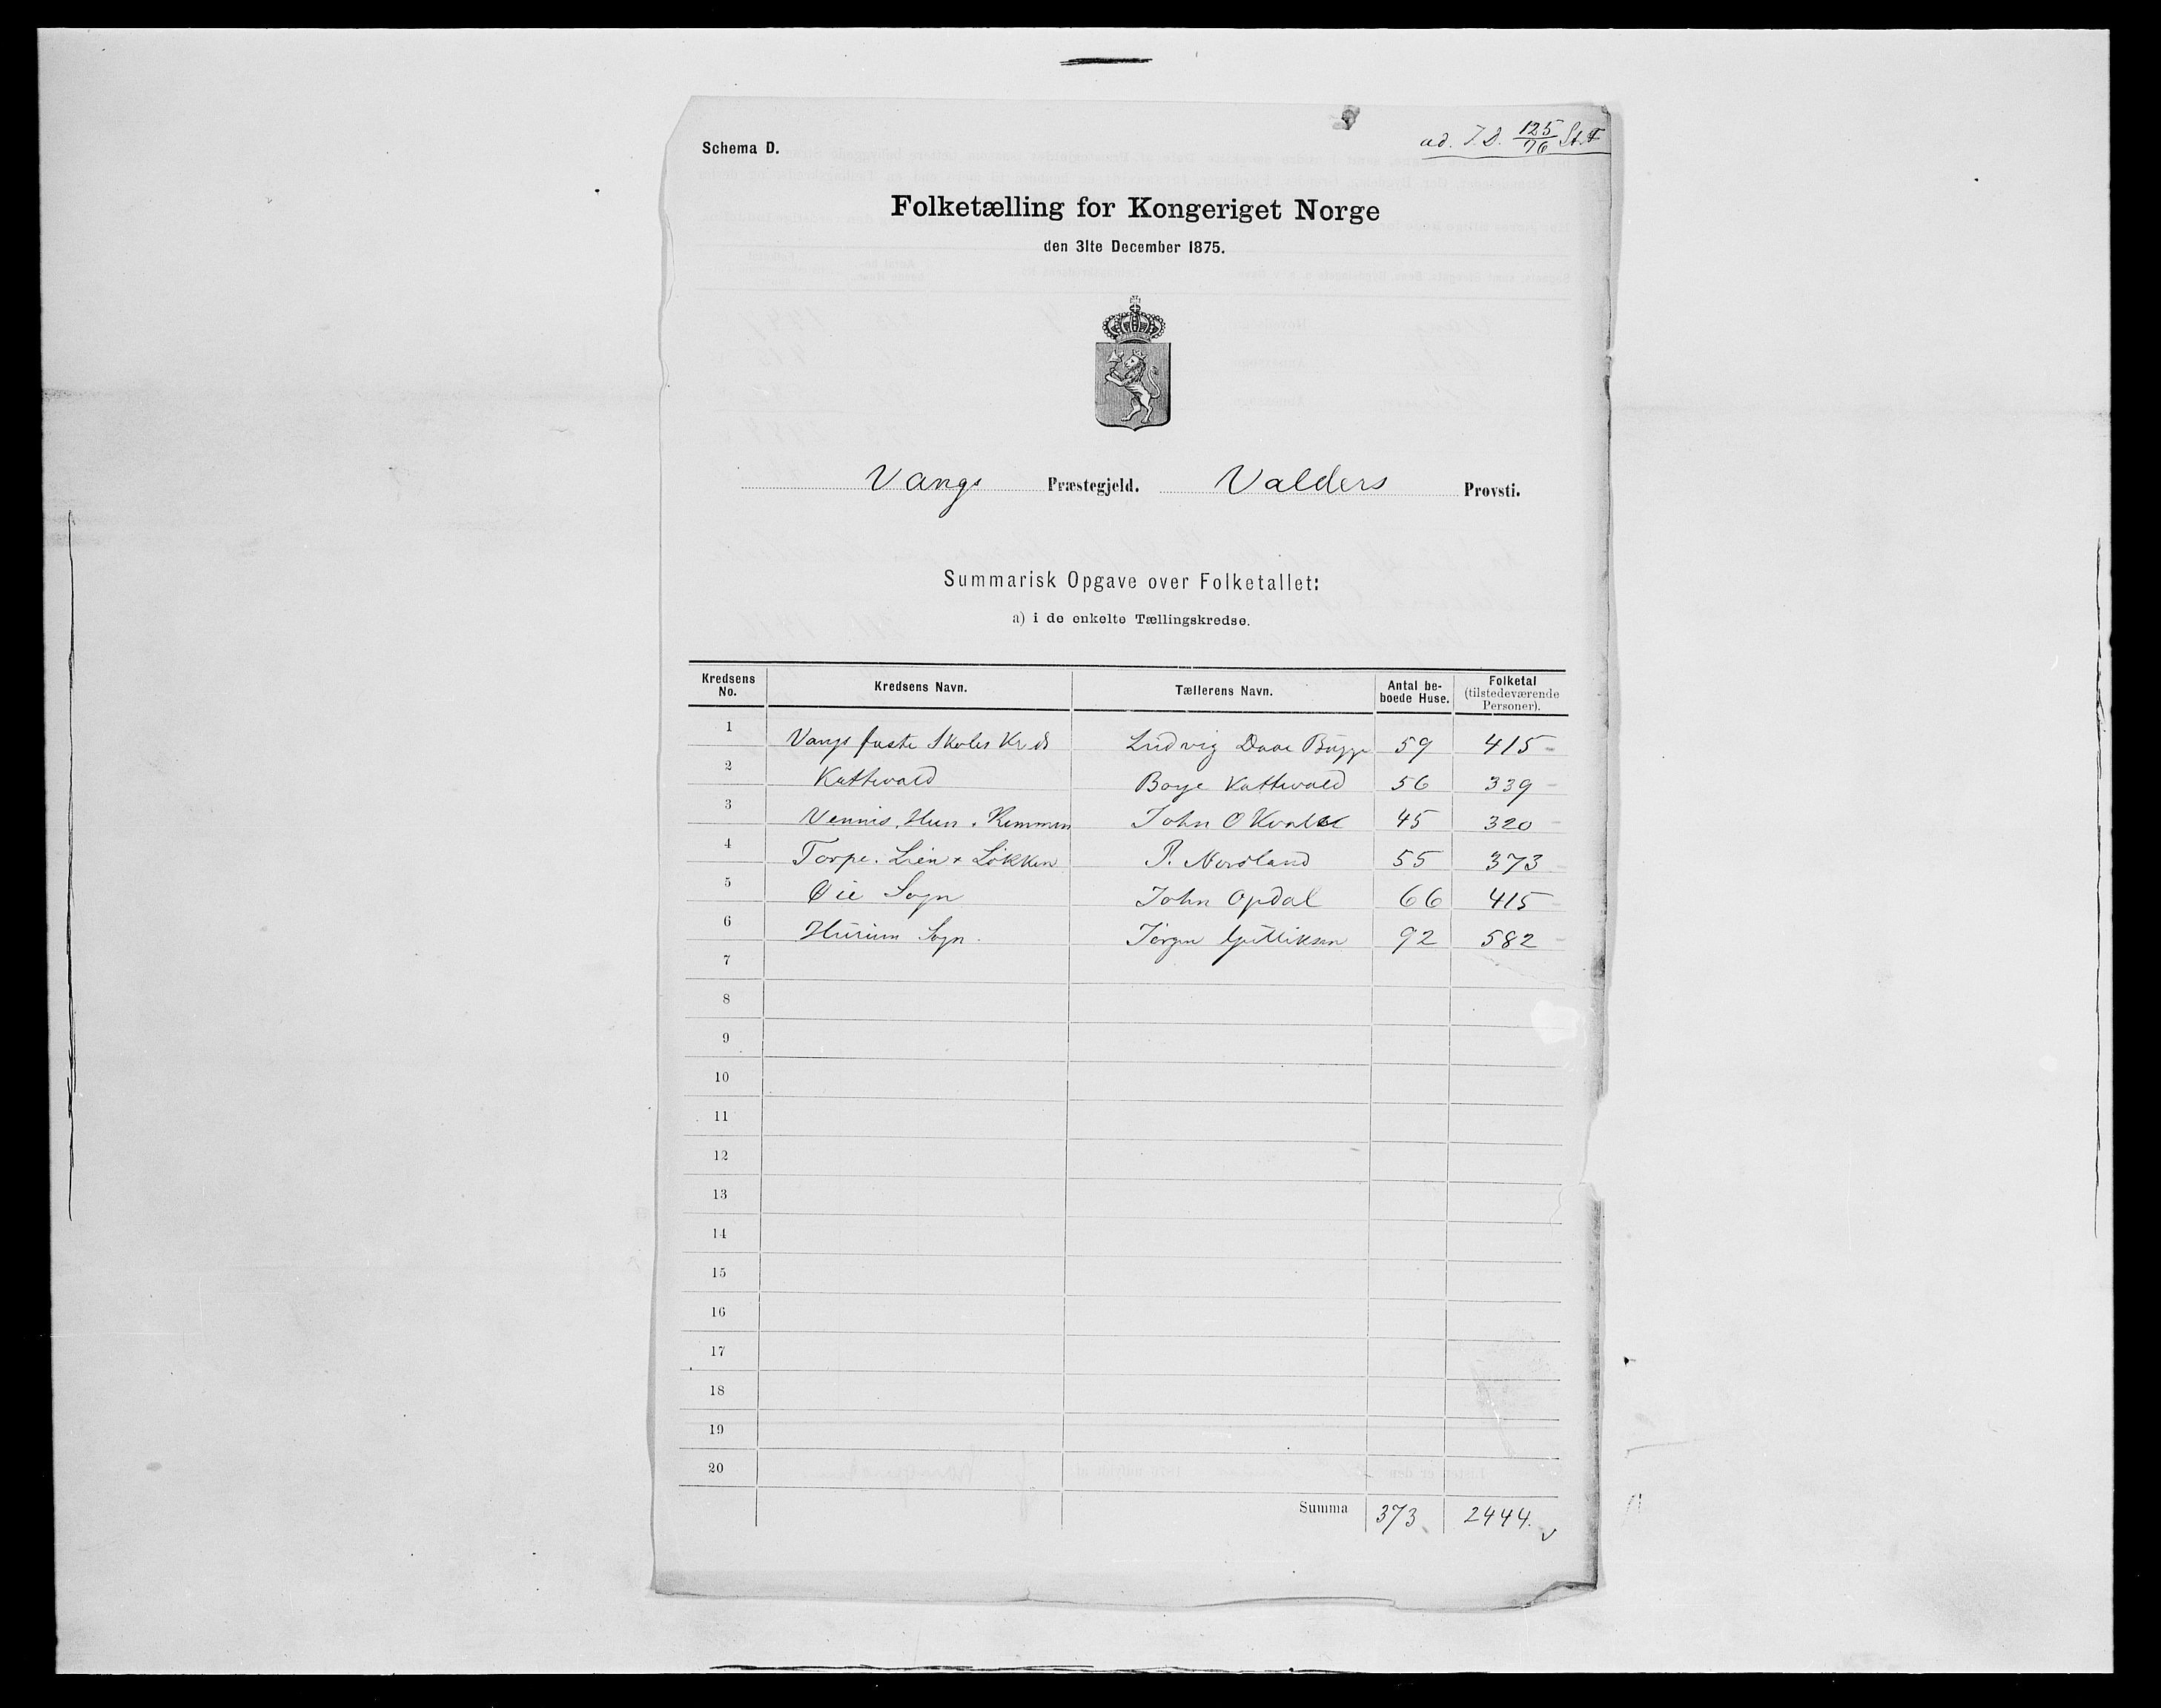 Schema D.
ad. J. D. 125/76 St. F
Folketælling for Kongeriget Norge
den 31te December 1875.
Vangs Præstegjeld. Valders Provsti.
Summarisk Opgave over Folketallet:
a) i de enkelte Tællingskredse.
Kredsens No. Kredsens Navn. Tællerens Navn. Antal beboede Huse. Folketal (tilstedeværende Personer).
1 Vangs faste Skoles Kreds Ludvig Daae Bugge 59 415
2 Kattevold Boye Kattevold 56 339
3 Vennis, Hun . Remmen John O Kvale 45 320
4 Torpe. Lien + Løkken P. Nordland 55 373
5 Øie Sogn John Opdal 66 415
6 Hurum Sogn. Jørgen Gulliksen 92 582
7
8
9
10
11
12
13
14
15
16
17
18
19
20
Summa 373 2444.